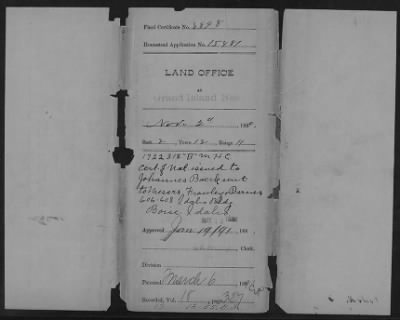 Final Certificate No. 3898
Homestead Application No. 15281
LAND OFFICE
AT
Grand Island Neb
Nov 2d 188
Sect. 2, Town 12, Range 11
1722318 "B" M H C
Cert of Nat issued to
Johannes sent
to Messrs, Frawley Barnes
606-608 Idaho Bldg
Boise, Idaho
Approved Jan 19/91 188
Clerk.
Division
Patented March 6 189
Recorded, Vol. 18 page 327